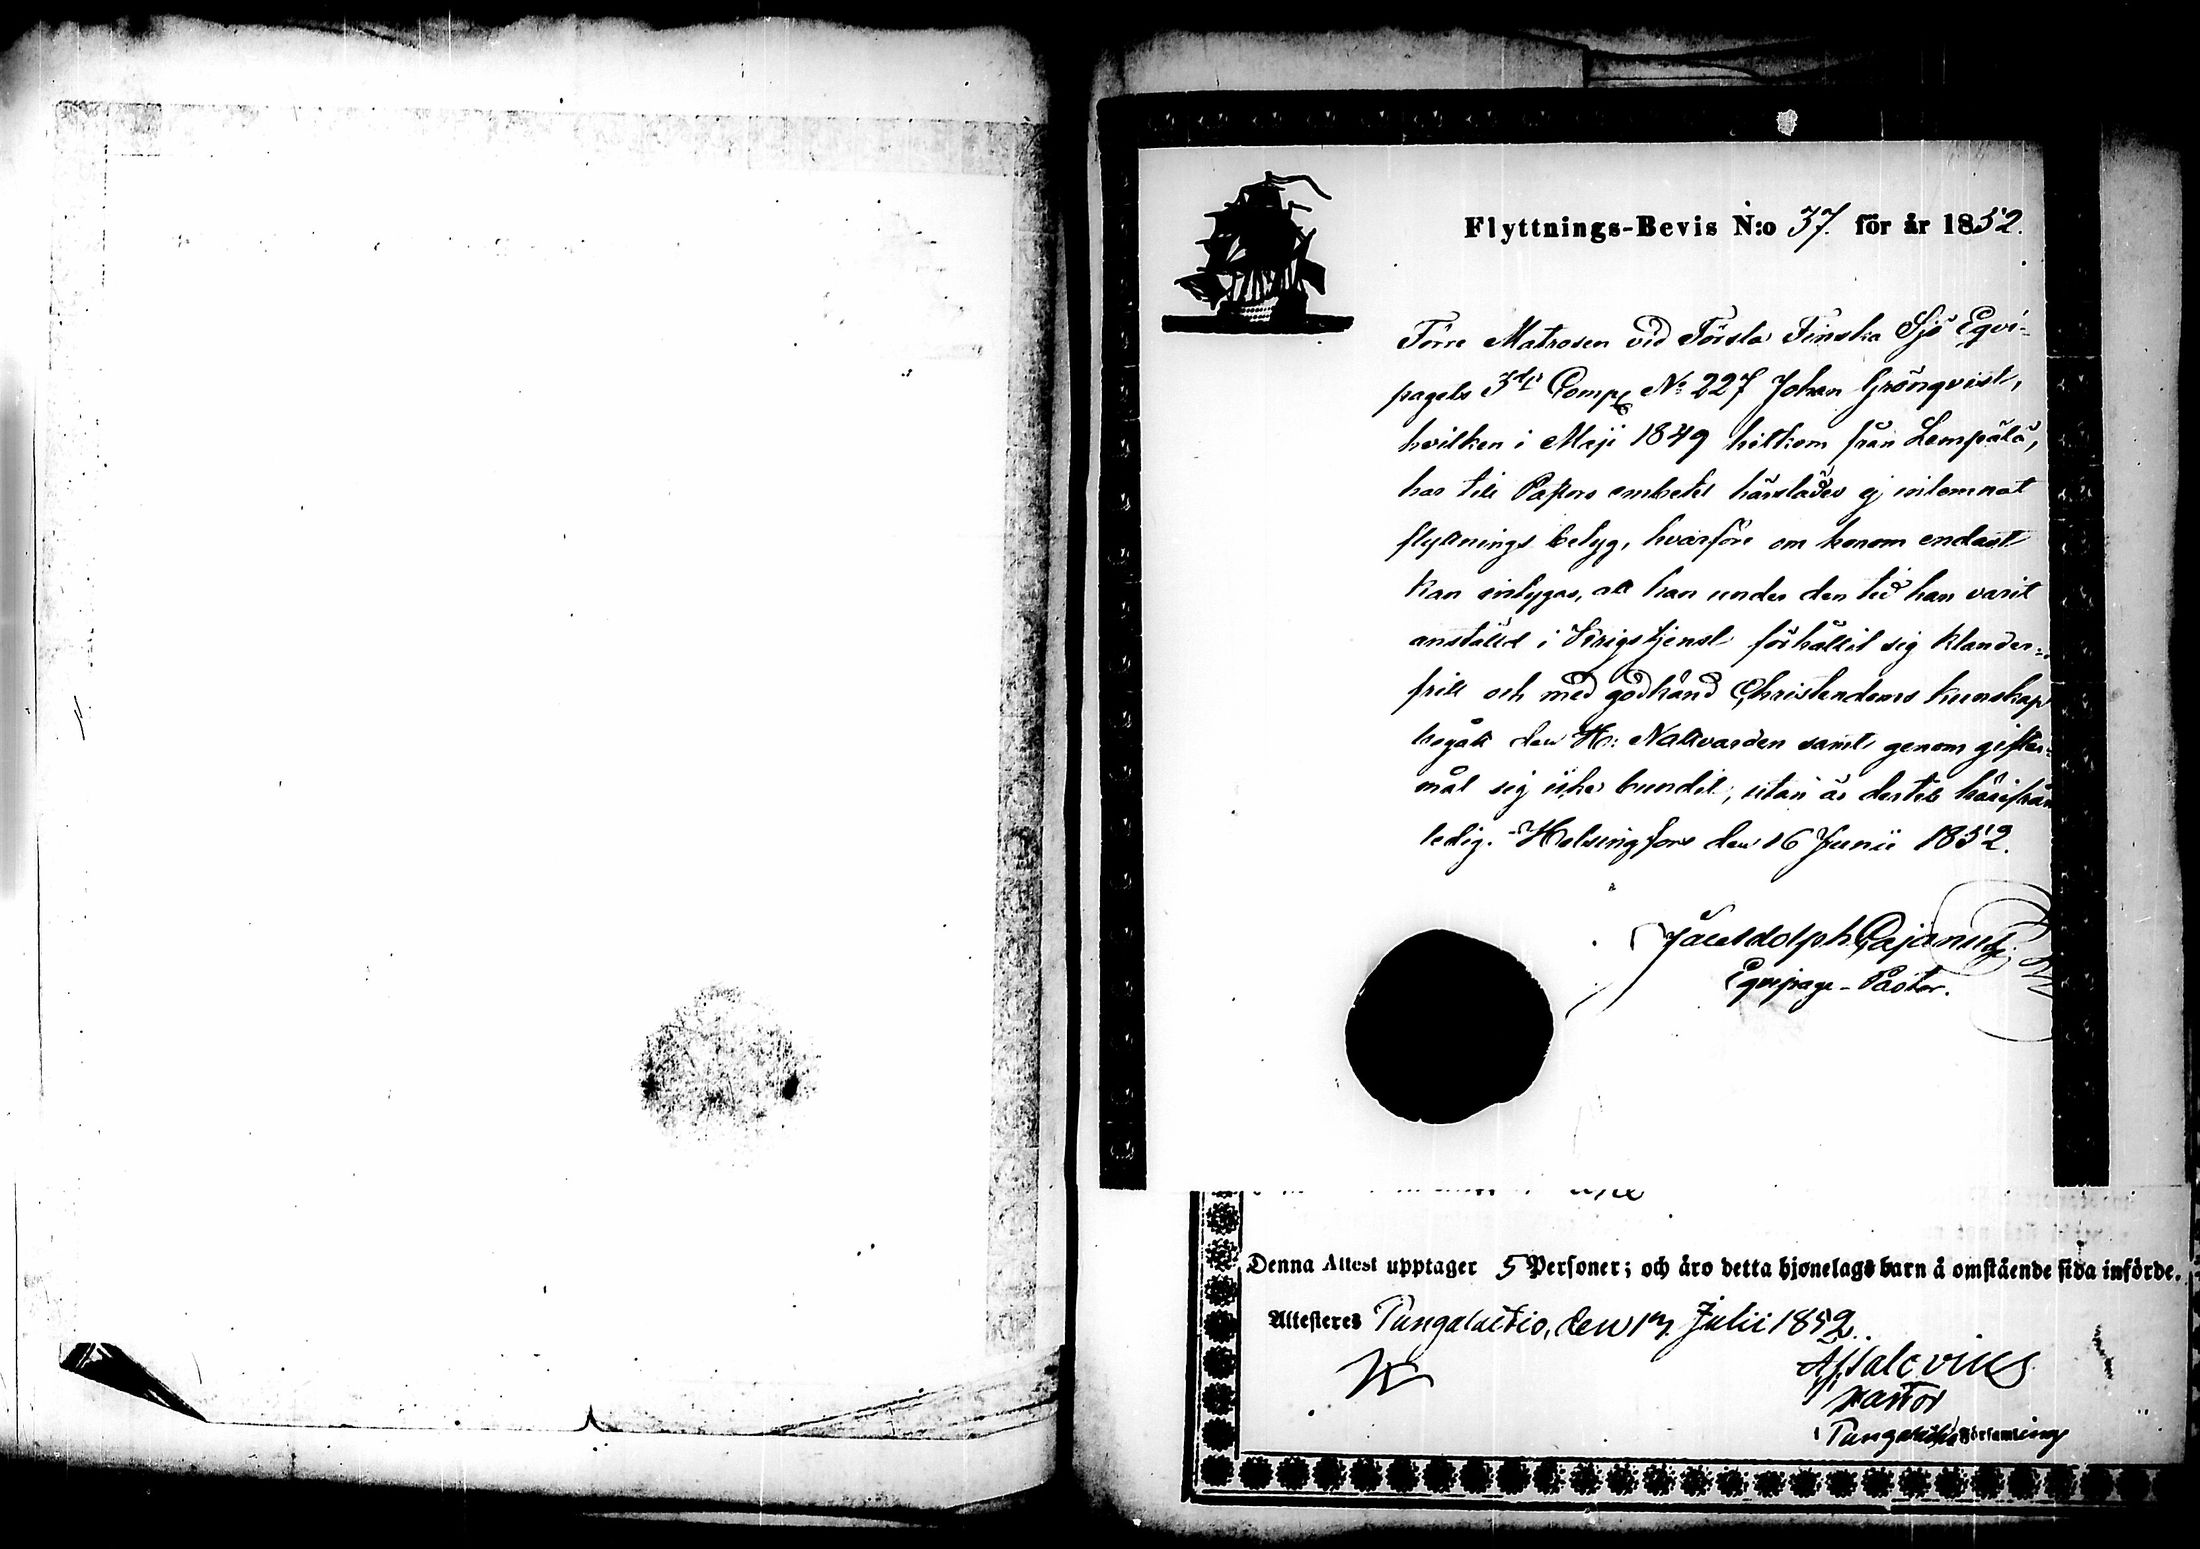 Flyttnings-Bevis N:o 37. för år 1852.
Förre Matrosen vid Första Finska Sjö Eqvi-
pagets 3dje Comp: No 227 Johan Grönqvist,
hvilken i Maji 1849 hitkom från Lempälä,
har till Pastors embetet härstädes ej inlemnat
flyttnings betyg, hvarföre om honom endast
kan intygas, att han under den tid han varit
anstäld i Krigstjenst förhållit sig klander-
fritt och med godkänd Christendoms kunskap
begått den H: Nattvarden samt genom gifter-
mål sig icke bundit, utan är dertill härifrån
ledig. Helsingfors den 16 Junii 1852.
Cajanus
Eqvipage-Pastor.
Denna Attest upptager 5 Personer; och äro detta hjonelags barn å omstående sida införde.
Attesteres Pungalaitio, den 17 Julii 1852.
Pastor
Församling